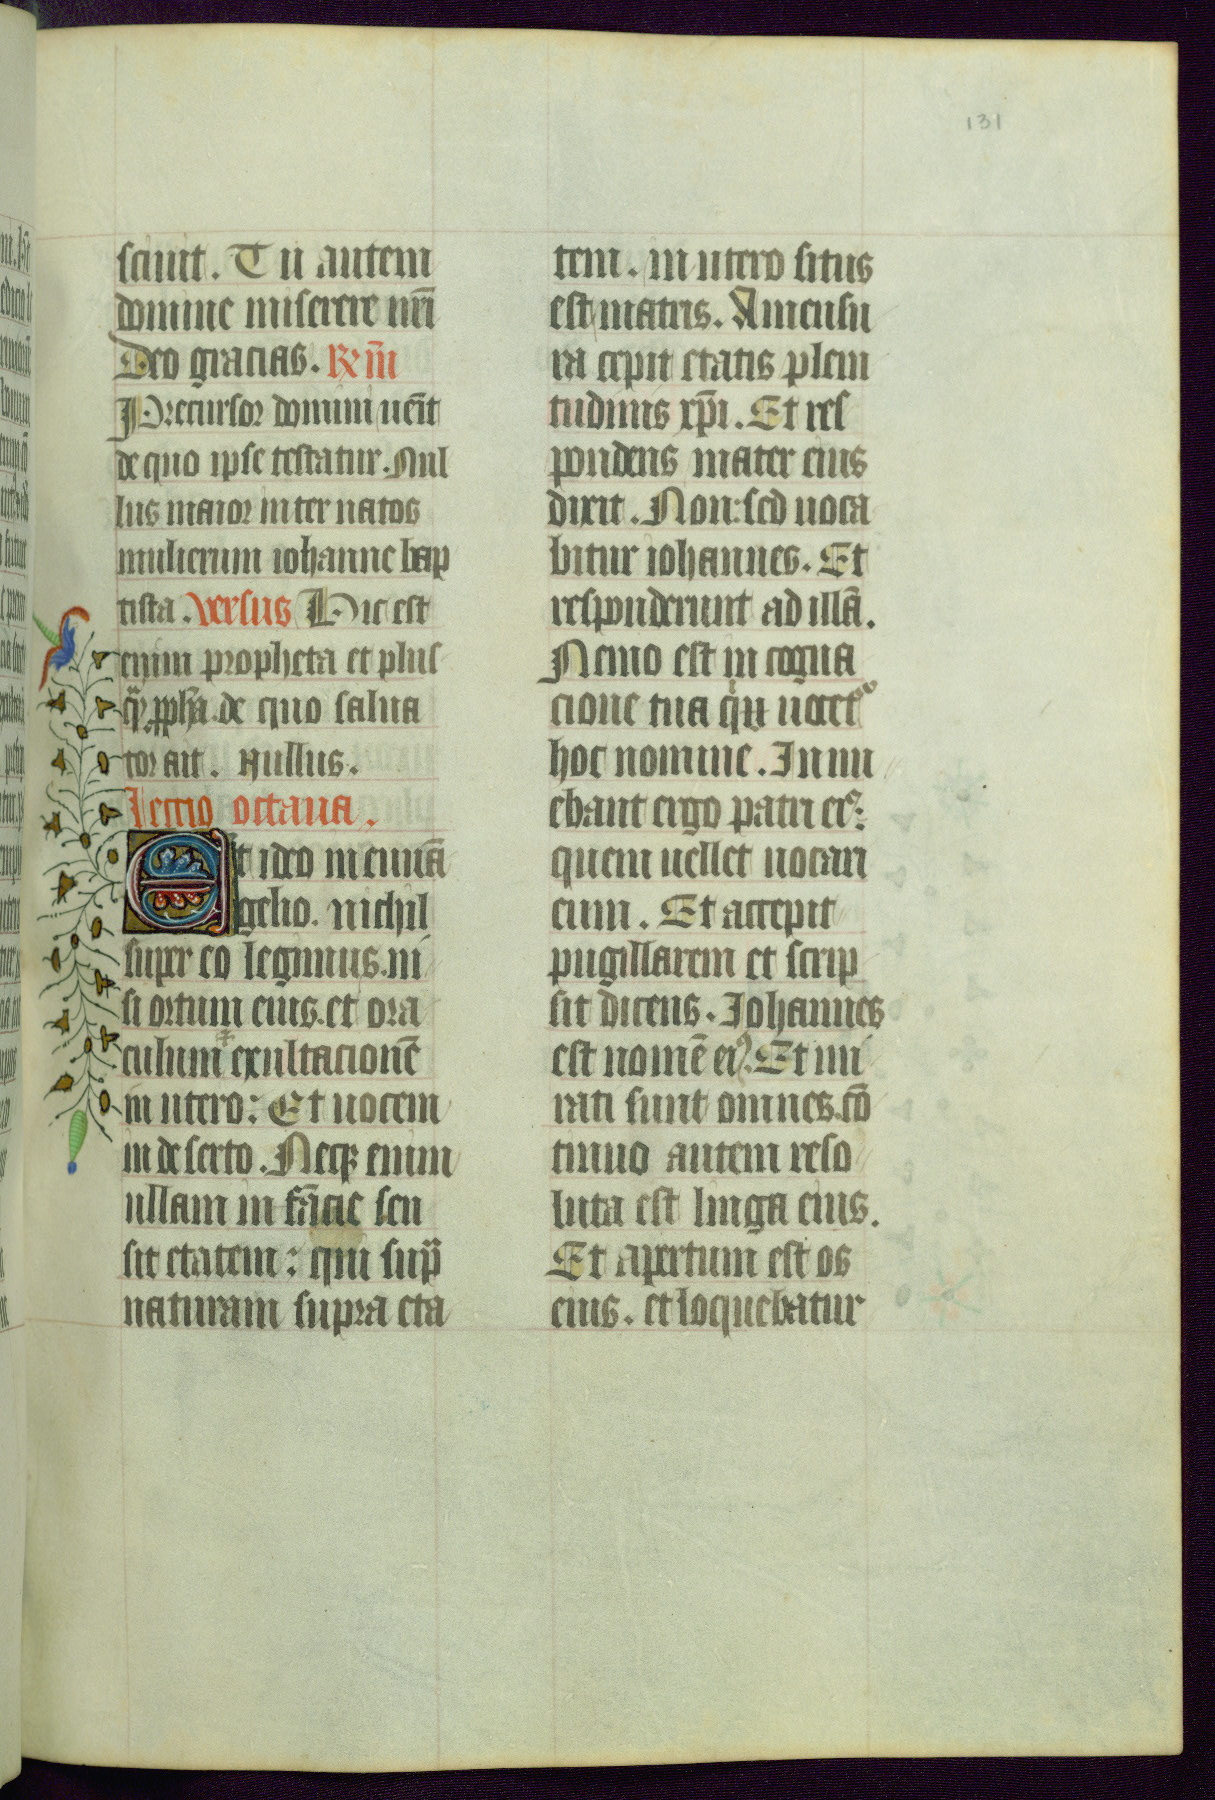 131
sciuit. Tu autem
domine miserere nr̄i
Deo gracias. R̄m̄
Precursor domini ueīt
de quo ipse testatur. Nul
lus maior inter natos
mulierum iohanne bap
tista. versus Hic est
enim propheta et plus
de quo salua
tor ait. nullus.
lectio octaua.
Et ideo in euuā
gelio. nichil
super eo legimus. ni
si ortum eius. et ora
culum exultacionē
in utero: Et uocem
in deserto. Neqꝫ enim
ullam in fācie sen
sit etatem: qui sup̄
naturam supra eta
tem. in utero situs
est matris. Amensu
ra cepit etatis pleni
tudinis xp̄i. Et res
pondens mater eius
dixit. Non: sed uoca
bitur iohannes. Et
responderunt ad illā.
Nemo est in cogna
cione tua qui uocet᷑
hoc nomine. Innu
ebant ergo patri eiꝰ:
quem uellet uocari
eum. Et accepit
pugillarem et scrip
sit dicens. Iohannes
est nomē eiꝰ. Et mi
rati sunt omnes. cō
tinuo autem reso
luta est linga eius.
Et apertum est os
eius. et loquebatur